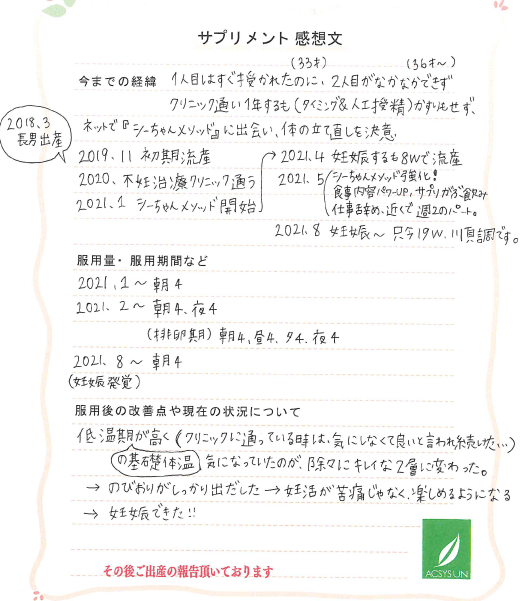 サプリメント 感想文
(33才) (36才〜)
今までの経緯 1人目はすぐ授かれたのに、2人目がなかなかできず
クリニック通い1年するも(タイミング&人工授精)かすりもせず、
2018.3 長男出産
ネットで『シーちゃんメソッド』に出会い、体の立て直しを決意
2019.11 初期流産
2020. 不妊治療クリニック通う
2021.1 シーちゃんメソッド開始
→2021.4 妊娠するも8Wで流産
2021.5 シーちゃんメソッド強化!
食事内容パワーUP, サプリがぶ飲み
仕事辞め、近くで週2のパート。
2021.8 妊娠〜 只今19W. 順調です。
服用量・服用期間など
2021.1〜 朝4
2021.2〜 朝4、夜4
(排卵期) 朝4、昼4、夕4、夜4
2021.8〜 朝4
(妊娠発覚)
服用後の改善点や現在の状況について
低温期が高く(クリニックに通っている時は、気にしなくて良いと言われ続けた…)
の基礎体温 気になっていたのが、徐々にキレイな2層に変わった。
→ のびおりがしっかり出だした → 妊活が苦痛じゃなく、楽しめるようになる
→ 妊娠できた!!
その後ご出産の報告頂いております
ACSYSUN